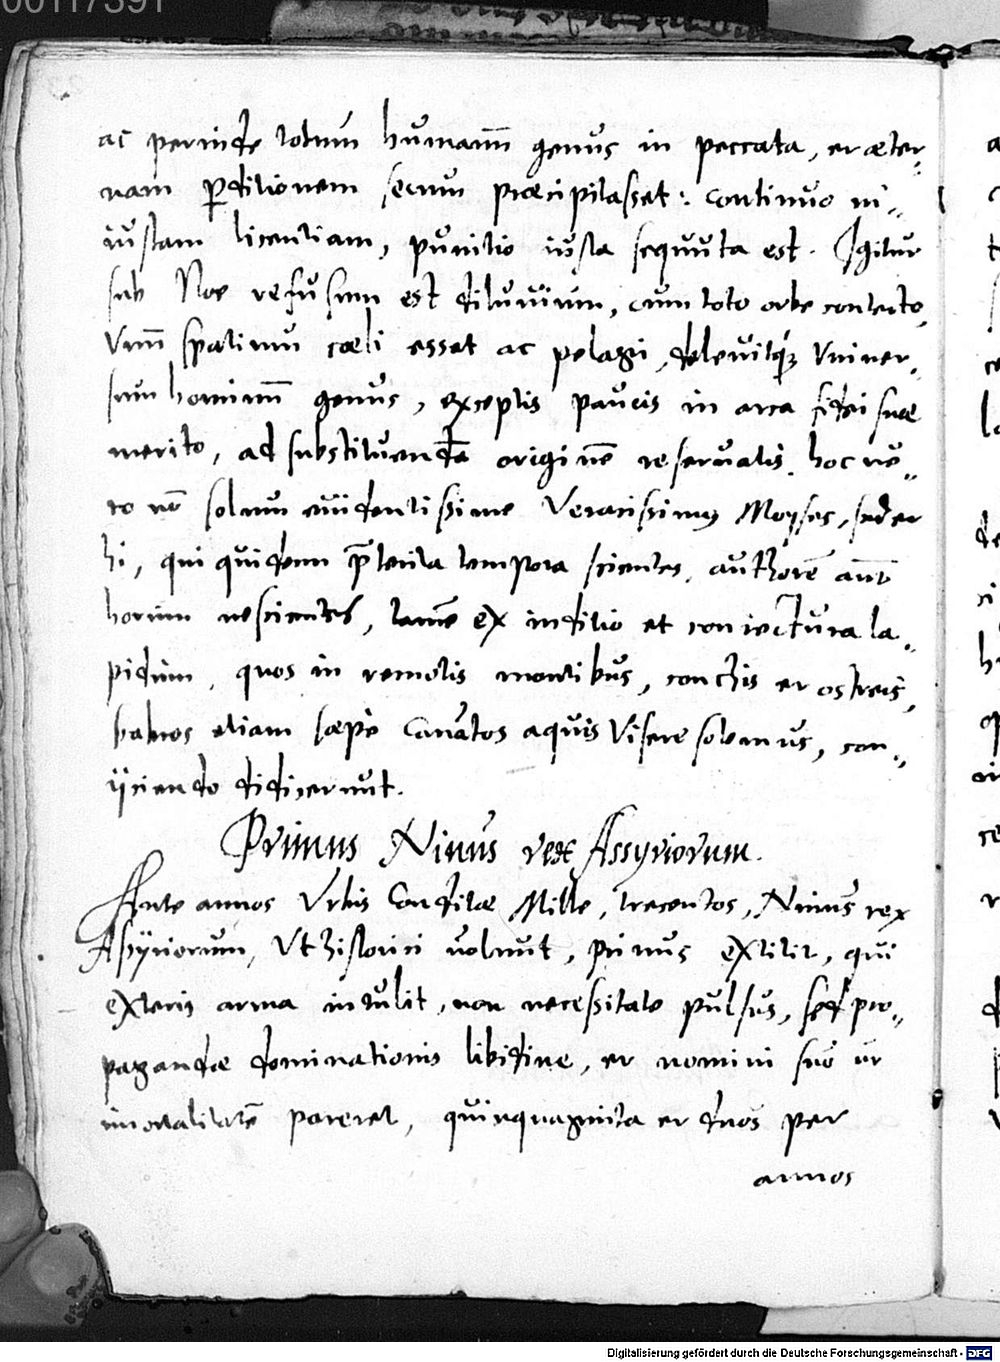 00117391
ac perinde totum humanū genus in peccata, et æter-
nam p̱ditionem secum præcipitasset: continuo in-
iustam licentiam, punitio iusta sequuta est. Igitur
sub Noe refusum est diluuium, cum toto orbe contecto,
Vnū spatium cæli esset ac pelagi, deleuitq́; Vniuer-
sum hominū genus, exceptis paucis in arca fidei suæ
merito, ad substituendā originē reseruatis. hoc ve-
ro nō solum euidentissime Veracissimus Moyses, sed et
hi, qui quidem p̄terita tempora scientes, authorē autē
horum nescientes, tamē ex inditio et coniectura la-
pidum, quos in remotis montibus, conchis et ostreis,
habros etiam sæpe Cauatos aquis Visere solemus, con-
ijciendo didicerunt.
Primus Ninus rex Assyriorum.
Ante annos Vrbis Conditæ Mille, trecentos, Ninus rex
Assyriorum, Vt historici uolunt, primus extitit, qui
exteris arma intulit, non necessitate pulsus, sed pro-
pagandæ dominationis libidine, et nomini suo ut
imortalitatē pareret, quinquaginta et duos per
annos
Digitalisierung gefördert durch die Deutsche Forschungsgemeinschaft - DFG